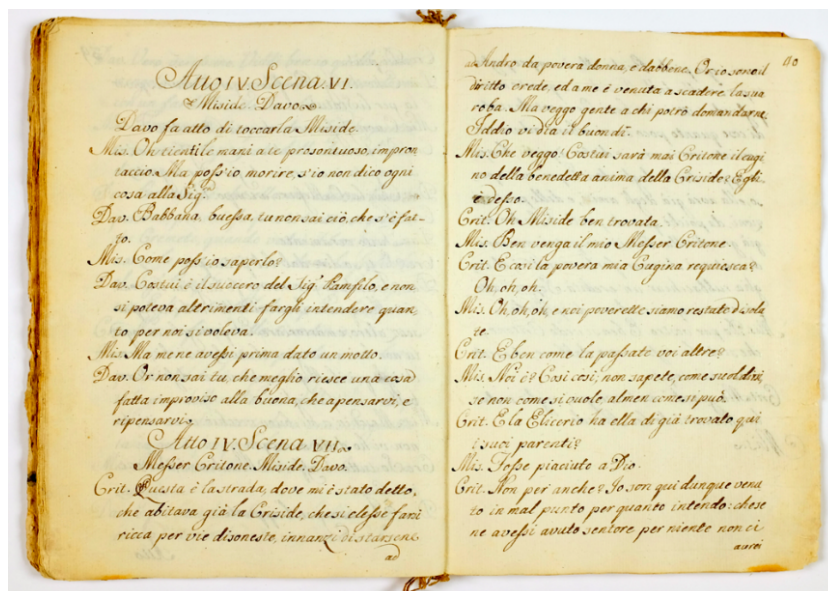 Atto IV. Scena VI.
Miside. Davo.
Davo fa atto di toccar la Miside.
Mis. Oh tienti le mani a te prosontuoso, impron
taccio. Ma poss'io, morire, s'io non dico ogni
cosa alla Sig.ra
Dav. Babbana, buessa, tu non sai ciò, che s'è fat-
to.
Mis. Come poss'io saperlo?
Dav. Costui è il suocero del Sig.r Pamfilo, e non
si poteva altrimenti fargli intendere quan-
to per noi si voleva.
Mis. Ma me ne avessi prima dato un motto.
Dav. Or non sai tu, che meglio riesce una cosa
fatta improviso alla buona, che a pensarvi, e
ripensarvi.
Atto IV. Scena VII.
Messer Critone. Miside. Davo.
Crit. Questa è la strada, dove mi è stato detto,
che abitava già la Criside, che si elesse farsi
ricca per vie disoneste, innanzi di starsene
ad
110
ad Andro da povera donna, e dabbene. Or io sono il
diritto erede, ed a me è venuta a scadere la sua
roba. Ma veggo gente a chi potrò domandarne.
Iddio vi dia il buondì.
Mis. Che veggo! Costui sarà mai Critone il cugi
no della benedetta anima della Criside? Egli
è desso.
Crit. Oh Miside ben trovata.
Mis. Ben venga il mio Messer Critone.
Crit. E così la povera mia Cugina requiesca?
Oh, oh, oh.
Mis. Oh, oh, oh, e noi poverette siamo restate disola
te.
Crit. E ben come la passate voi altre?
Mis. Noi è? Così così, non sapete, come suol dirsi,
se non come si vuole, almen come si può.
Crit. E la Glicerio ha ella di già trovato qui
i suoi parenti?
Mis. Fosse piaciuto a Dio.
Crit. Non per anche? Io son qui dunque venu
to in mal punto per quanto intendo: che se
ne avessi avuto sentore per niente non ci
averei